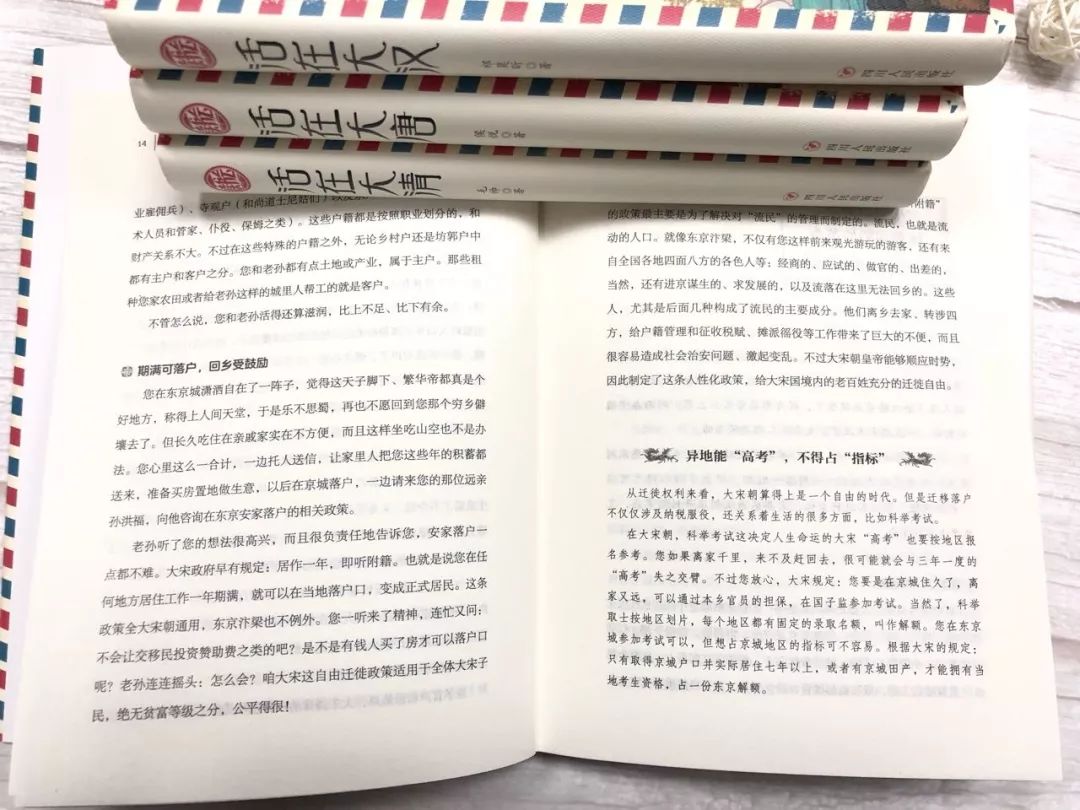 活在大汉
著
四川人民出版社
活在大唐
侯悦 著
四川人民出版社
活在大清
毛帅 著
四川人民出版社
14
业雇佣兵）、寺观户（和尚道士尼姑们
术人员和管家、仆役、保姆之类）。这些户籍都是按照职业划分的，和
财产关系不大。不过在这些特殊的户籍之外，无论乡村户还是坊郭户中
都有主户和客户之分。您和老孙都有点土地或产业，属于主户。那些租
种您家农田或者给老孙这样的城里人帮工的就是客户。
不管怎么说，您和老孙活得还算滋润，比上不足、比下有余。
期满可落户，回乡受鼓励
您在东京城潇洒自在了一阵子，觉得这天子脚下、繁华帝都真是个
好地方，称得上人间天堂，于是乐不思蜀，再也不愿回到您那个穷乡僻
壤去了。但长久吃住在亲戚家实在不方便，而且这样坐吃山空也不是办
法。您心里这么一合计，一边托人送信，让家里人把您这些年的积蓄都
送来，准备买房置地做生意，以后在京城落户，一边请来您的那位远亲
孙洪福，向他咨询在东京安家落户的相关政策。
老孙听了您的想法很高兴，而且很负责任地告诉您，安家落户一
点都不难。大宋政府早有规定：居作一年，即听附籍。也就是说您在任
何地方居住工作一年期满，就可以在当地落户口，变成正式居民。这条
政策全大宋朝通用，东京汴梁也不例外。您一听来了精神，连忙又问：
不会让交移民投资赞助费之类的吧？是不是有钱人买了房才可以落户口
呢？老孙连连摇头：怎么会？咱大宋这自由迁徙政策适用于全体大宋子
民，绝无贫富等级之分，公平得很！
附籍”
的政策最主要是为了解决对“流民”的管理而制定的。流民，也就是流
动的人口。就像东京汴梁，不仅有您这样前来观光游玩的游客，还有来
自全国各地四面八方的各色人等：经商的、应试的、做官的、出差的，
当然，还有进京谋生的、求发展的，以及流落在这里无法回乡的。这些
人，尤其是后面几种构成了流民的主要成分。他们离乡去家、转涉四
方，给户籍管理和征收税赋、摊派徭役等工作带来了巨大的不便，而且
很容易造成社会治安问题、激起变乱。不过大宋朝皇帝能够顺应时势，
因此制定了这条人性化政策，给大宋国境内的老百姓充分的迁徙自由。
异地能“高考”，不得占“指标”
从迁徙权利来看，大宋朝算得上是一个自由的时代。但是迁移落户
不仅仅涉及纳税服役，还关系着生活的很多方面，比如科举考试。
在大宋朝，科举考试这决定人生命运的大宋“高考”也要按地区报
名参考。您如果离家千里，来不及赶回去，很可能就会与三年一度的
“高考”失之交臂。不过您放心，大宋规定：您要是在京城住久了，离
家又远，可以通过本乡官员的担保，在国子监参加考试。当然了，科举
取士按地区划片，每个地区都有固定的录取名额，叫作解额。您在东京
城参加考试可以，但想占京城地区的指标可不容易。根据大宋的规定：
只有取得京城户口并实际居住七年以上，或者有京城田产，才能拥有当
地考生资格，占一份东京解额。